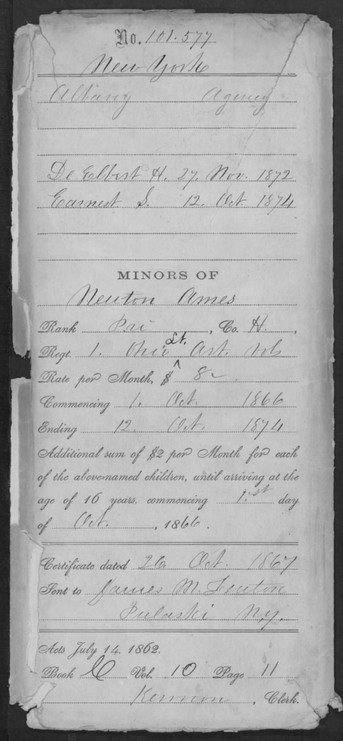 No. 101.577
New York
Albany Agency
De Elbert H. 27. Nov. 1872
Earnest S. 12. Oct. 1874
MINORS OF
Newton Ames
Rank Pri , Co. H.
Regt. 1. Ohio Lt. Art. Vols
Rate per Month, $ 8
Commencing 1. Oct. 1866
Ending 12. Oct. 1874
Additional sum of $2 per Month for each
of the above-named children, until arriving at the
age of 16 years, commencing 1.st day
of Oct. , 1866.
Certificate dated 26 Oct. 1867
Sent to James M. Fenton
Pulaski N.Y.
Acts July 14, 1862.
Book C Vol. 10 Page 11
Clerk.